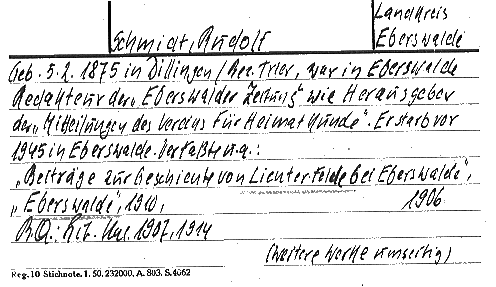 Landkreis
Schmidt, Rudolf Eberswalde
Geb. 5.2. 1875 in Dillingen / Bez. Trier, war in Eberswalde
Redakteur der „Eberswalder Zeitung" wie Herausgeber
der „Mitteilungen des Vereins für Heimatkunde". Er starb vor
1945 in Eberswalde. Verfaßte u.a.:
„Beiträge zur Geschichte von Lichterfelde bei Eberswalde",
„Eberswalde", 1910, 1906
B.Q.: Lit. 1907, 1914
(weitere Werke umseitig)
Reg. 10 Stichnote. 1. 50. 232000. A. 803. S. 4062